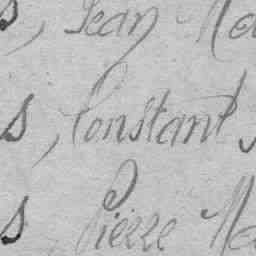 s, Jean Ma
s, Constant
s, Pierre Ma